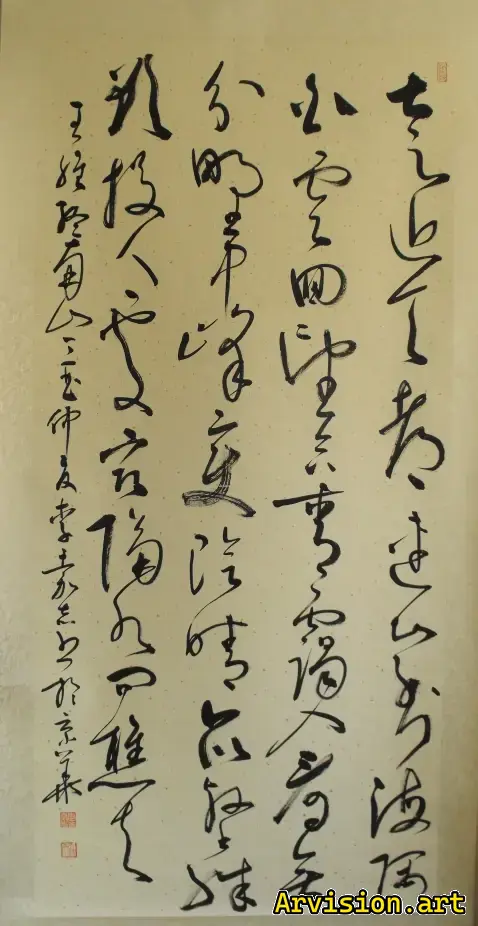 太乙近天都連山到海隅
白雲回望合青靄入看無
分野中峰變陰晴眾壑殊
欲投人處宿隔水問樵夫
王維終南山仲夏李嘉志书於京華
Arvision.art